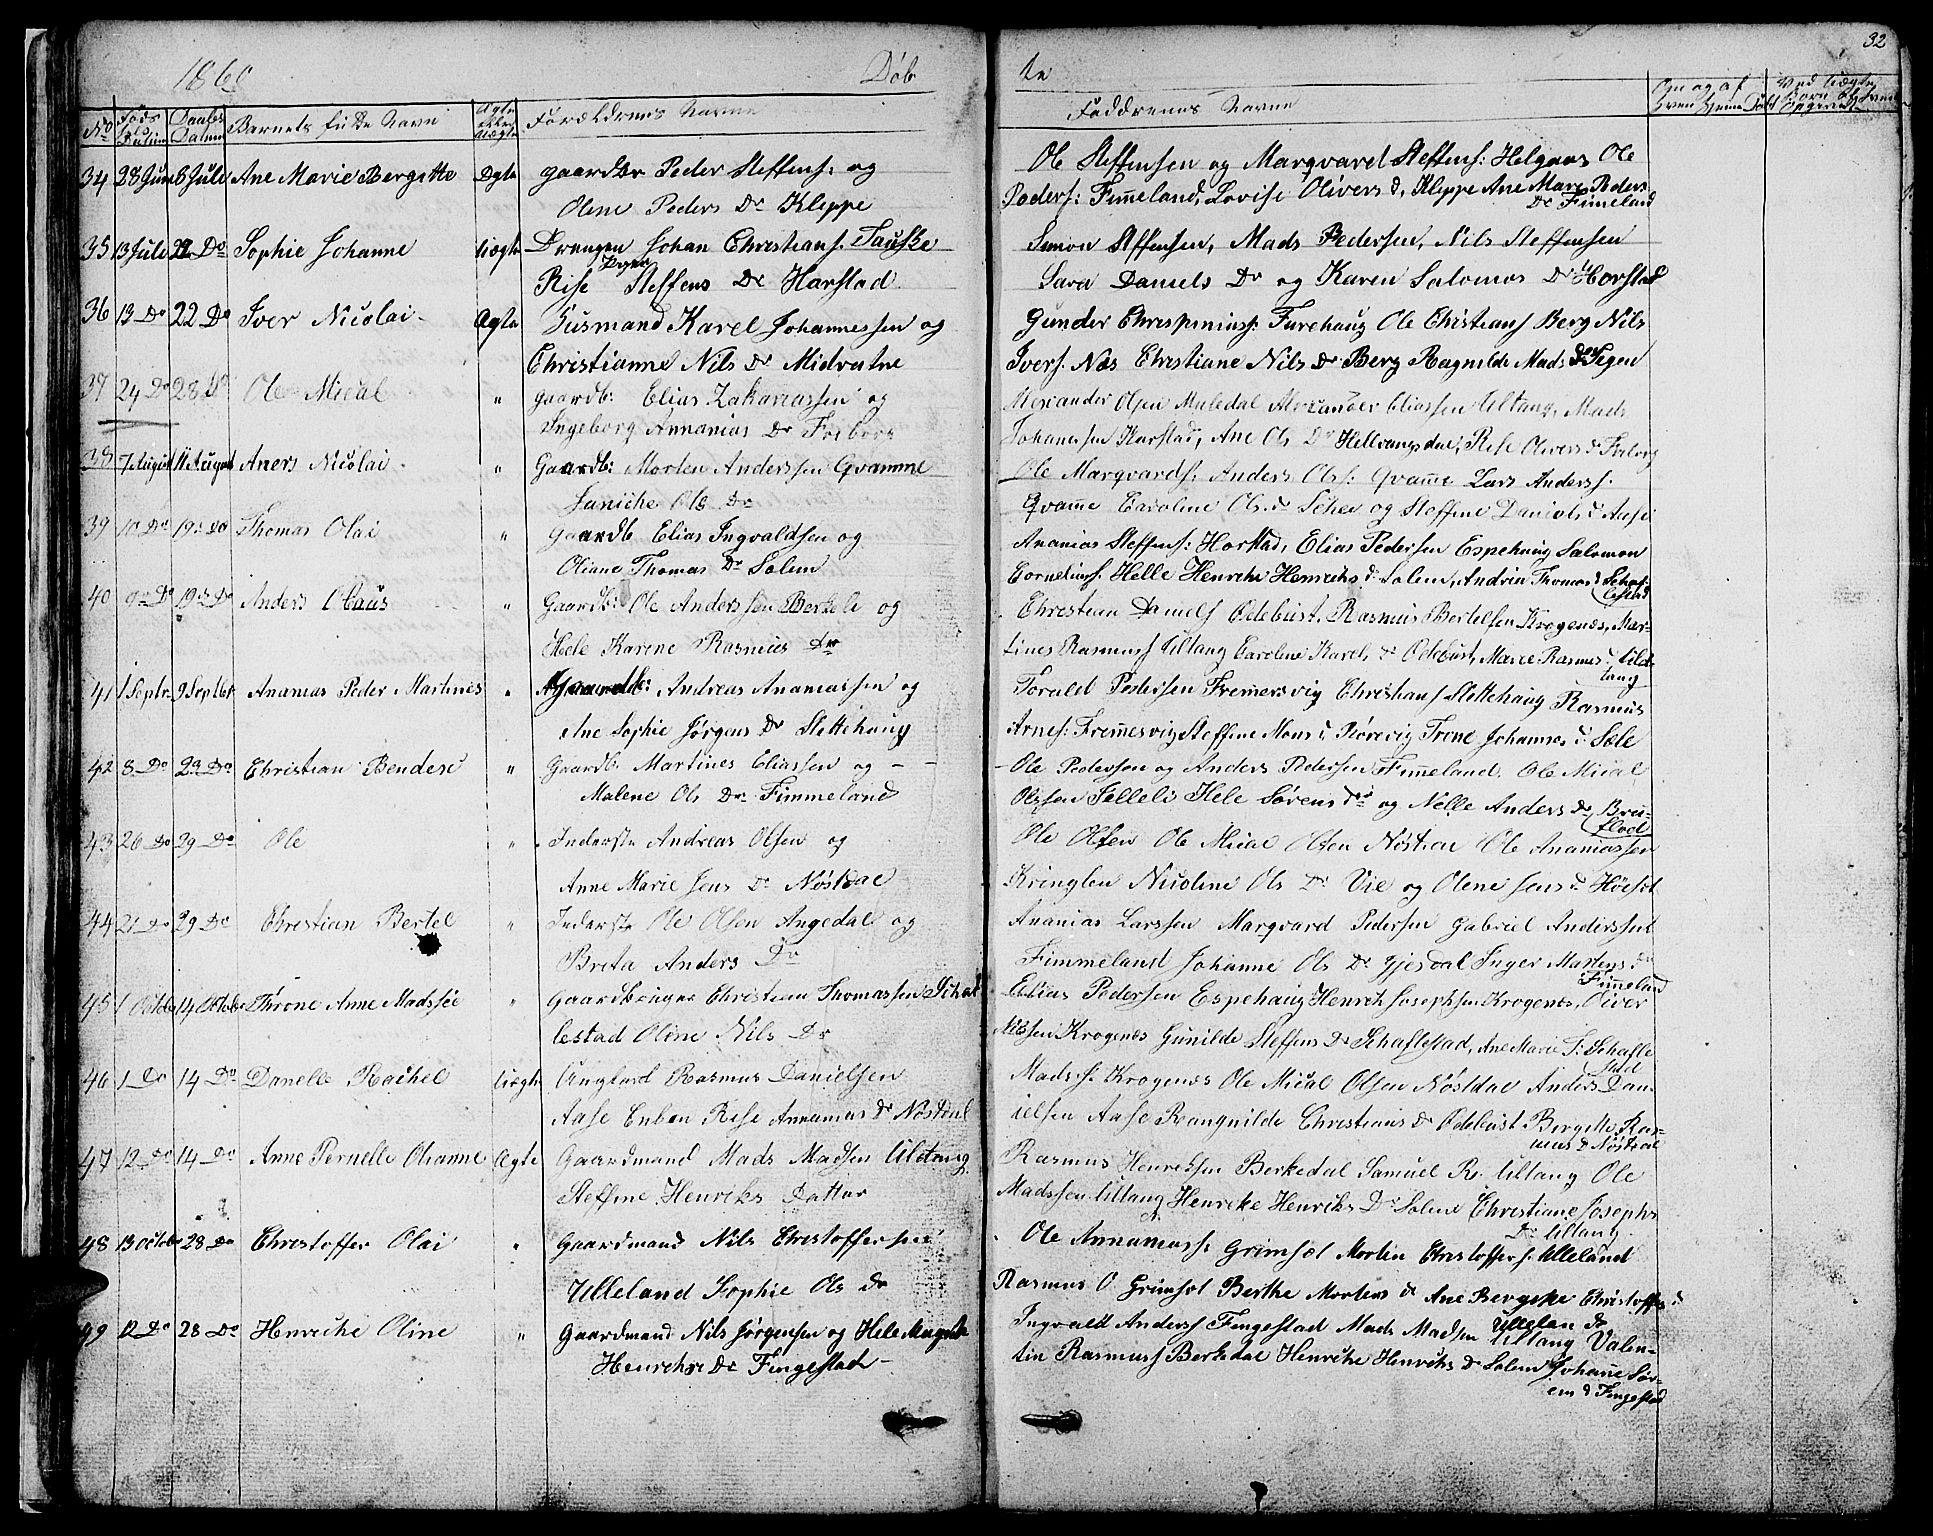 32
1860 Døb te
No Föds Datum Daabs Datum Barnets fulde Navn Ægte eller uægte Foræeldrenes Navne
Faddrenes Navne
34 28 Juni 8 Jule Ane Marie Bergitte Ægte gaardbr Peder Steffens: og
Olene Peders Dr Kleppe
Ole Steffensen og Marqvard Steffens: Helgaas Ole
Peders: Fim̄eland, Lovise Olivers d, Kleppe Ane Marie Peders
Dr Fim̄eland
35 13 Jule 22 Do Sophie Johanne Uægte Drengen Johan Christians. Tauske
Rise Steffens Dr Harstad
Simon Steffensen, Mads Pedersen, Nils Steffensen
Sara Daniels Dr og Karen Salomos Dr Horstad
36 13 Do 22 Do Iver Nicolai Ægte Husmand Karel Johannessen og
Christianne Nils Dr Midvatne
Gunder Chrespinius: Furehaug Ole Christians Berg Nils
Ivers. Næs Christiane Nils Dr Berg Ragnilde Mads Dr Tegen
37 24 Do 28 Do Ole Mical " Gaardb: Elias Zakariassen og
Ingeborg Annanias Dr Forborg
Alexander Olsen Muledal Alexander Eliassen Ultang, Mads
Johannssen Harstad, Ane Ols Dr Hellvangsdal, Rise Olivers d Forborg
38 7 August 11 August Aners Nicolai " Gaardb: Morten Anderssen Qvamme
Janiche Ols Dr
Ole Marqvards: Anders Ols: Qvam̄e Lars Anders:
Qvam̄e Caroline Ols. d Schei og Steffine Daniels d Aase
39 10 Do 19 Do Thomas Olai " Gaardb Elias Ingvaldsen og
Oliane Thomas Dr Solem
Ananias Steffens: Horstad, Elias Pedersen Espehaug Salomon
Cornelius. Helle Henrike Henriks d Solem, Andrin Thomas d Schaf-
lestad
40 9 Do 19 Do Anders Claus " Gaardb: Ole Anderssen Berkeli og
Hele Karine Rasmus Dr
Christian Daniels Odebust, Rasmus Bertelsen Krogenæs, Mar-
tines Rasmuss Ultang Caroline Karel, d Odebust, Marie Rasmus d Uld-
tang
41 1 Septr 9 Septbr Ananias Peder Martines " Gaardb: Andreas Ananiassen og
Ane Sophie Jørgens Dr Slettehaug
Torald Pedersen Frem̄ersvig Christians Slettehaug Rasmus
Arnes: Frem̄esvig Steffine Mons d Rørevig Trone Johannes d Sæle
42 8 Do 29 Do Christian Bendese " Gaardb Martines Eliassen og
Malene Ols Dr Fimmeland
Ole Pedersen og Anders Pedersen Fim̄eland. Ole Mical
Olsen Felleli Hele Sørens dr og Nelle Anders Dr Bru-
flod
43 26 Do 29 Do Ole " Inderste Andreas Olsen og
Anne Marie Jens Dr Nøstdal
Ole Olsen Ole Mical Olsen Nøstdal Ole Ananiassen
Kringlen Nicoline Ols Dr Vie og Olene Jens d Høiset
44 21 Do 29 Do Christian Bertel " Inderste Ole Olsen Angedal og
Brita Anders Dr
Ananias Larssen Marqvard Pedersen Gabriel Anderssen
Fimmeland Johanne Ols Dr Gjesdal Inger Martens Dr
Fim̄eland
45 1 Octobr 14 Octobr Throne Anne Madssøe " Gaardbruger Christian Thomassen Schaf
lestad Oline Nils Dr
Elias Pedersen Espehaug Henrich Josephsen Krogenæs, Oliver
Nilssen Krogenæs Gunilde Steffens Dr Schaflestad, Ane Marie T: Schafle
stad
46 1 Do 14 Do Danelle Rachel Uægte Ungkarl Rasmus Danielsen
Aase Enken Rise Annanias Dr Nøstdal
Mads N: Krogenæs Ole Mical Olsen Nøstdal Anders Dan-
ielsen Aase Rangnilde Christians Dr Odebust Bergitte Ras-
mus d Nøstdal
47 12 Do 14 Do Anne Pernelle Olianne Ægte Gaardmand Mads Madsen Uldtang
Steffine Henriks Datter
Rasmus Henriksen Berkedal Samuel R. Ultang Ole
Madssen Ultang Henrike Henriks Dr Solem Christiane Josephs
Dr Ultang
48 13 Octobr 28 Do Christoffer Olai " Gaardmand Nils Christoffersen
Ulleland Sophie Ols dr
Ole Annanias: Grimsøl Morten Christoffers: Ulleland
Rasmus O Grimsøl Berthe Mortens d Ane Bergithe Christoffers d
Ullelan d
49 12 Do 28 Do Henriche Oline " Gaardmand Nils Jørgensen og Hele Magrete
Henriks Dr Fingestad
Ingvald Anderss Fingestad Mads Madsen Ultang Valen-
tin Rasmuss Berkedal Henriche Henrichs d Solem Johan̄e Sør-
ens d Fingestad